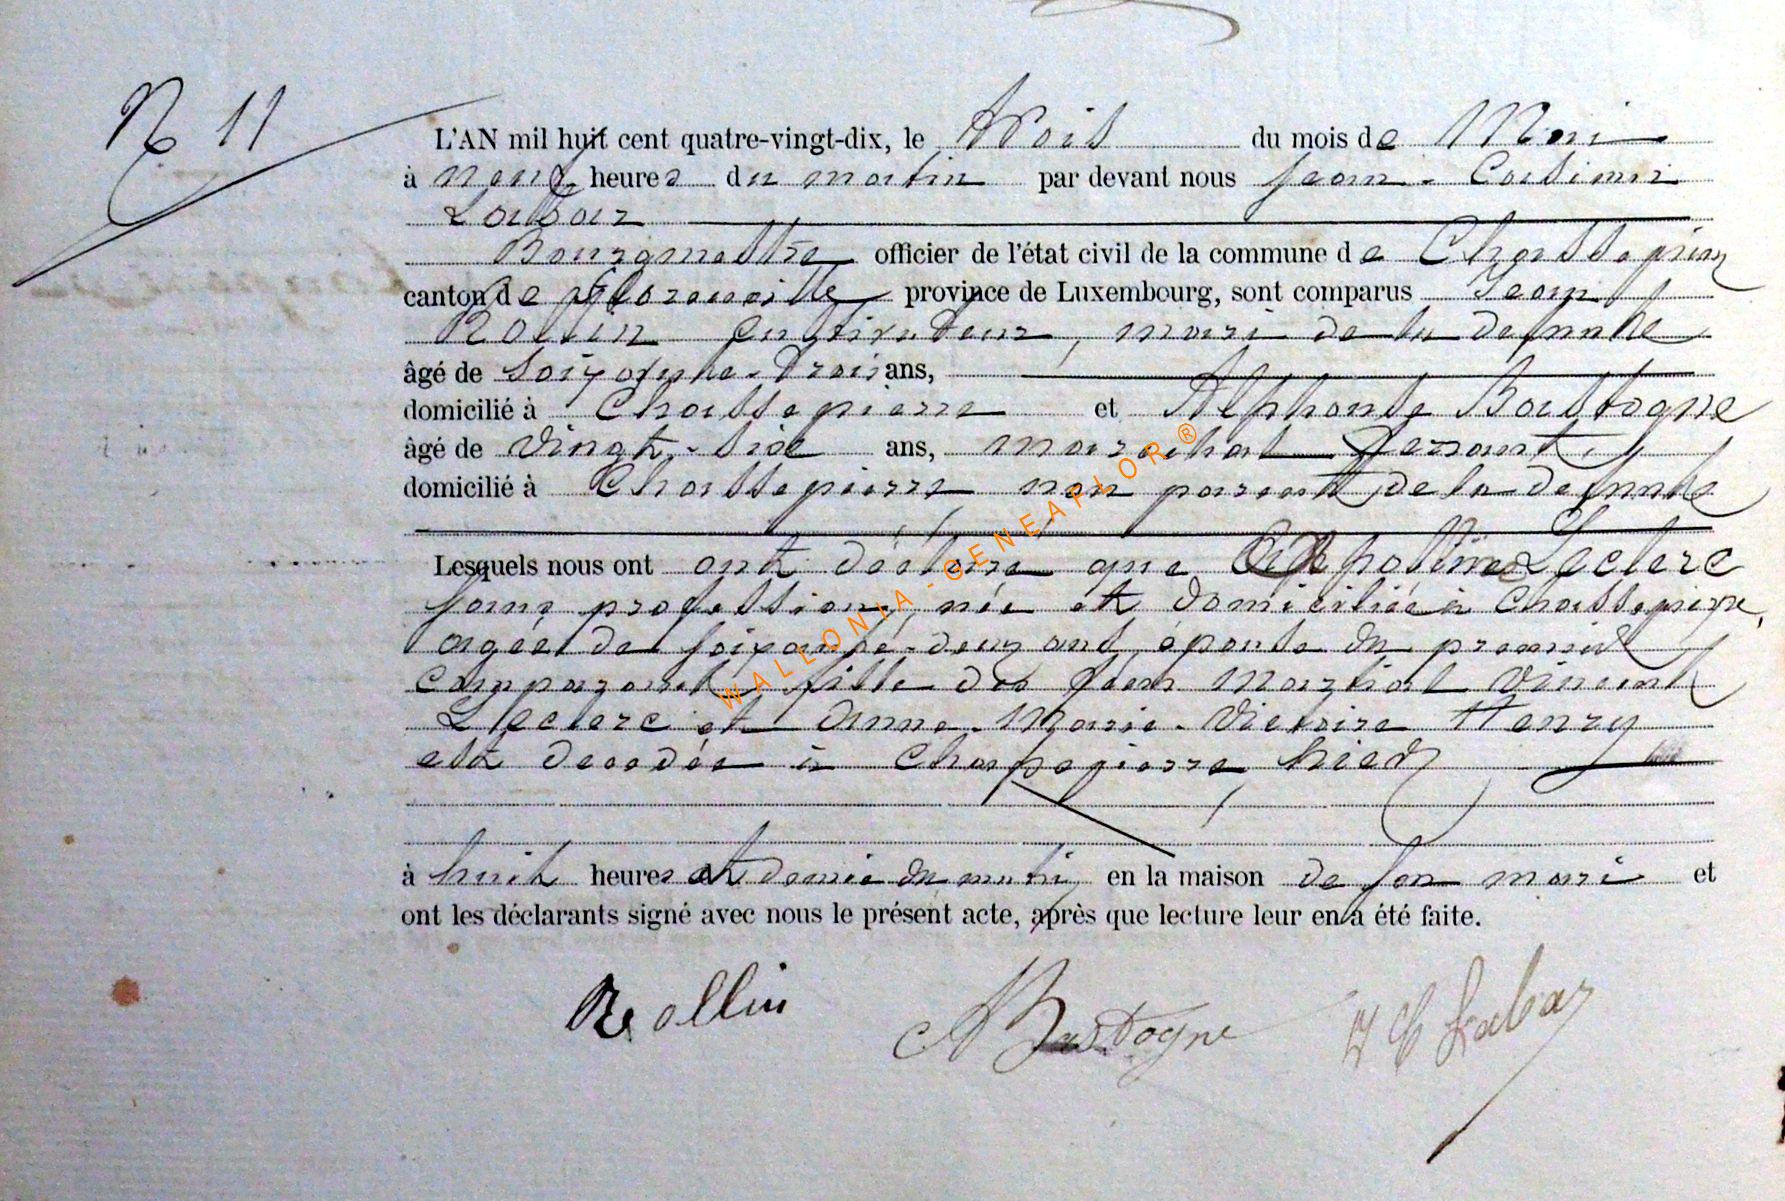 N° 11
L'AN mil huit cent quatre-vingt-dix, le trois du mois de Mai
à neuf heures du matin par devant nous Jean-Casimir
Labbar
Bourgmestre officier de l'état civil de la commune de Chassepierre
canton de Florenville province de Luxembourg, sont comparus Jean
Rollin Cultivateur, mari de la défunte
âgé de soixante-trois ans,
domicilié à Chassepierre et Alphonse Bastogne
âgé de vingt-six ans, maréchal ferrant,
domicilié à Chassepierre non parent de la défunte
Lesquels nous ont ont déclaré que Leclerc
sans profession, née et domiciliée à Chassepierre,
agée de soixante-deux ans, épouse du premier
comparant, fille des feus Martial Vincent
Leclerc et Anne-Marie-Victoire Henry
est décédée à Chassepierre hier
à huit heures et demie du matin en la maison de son mari et
ont les déclarants signé avec nous le présent acte, après que lecture leur en a été faite.
Rollin ABastogne JC Labar
WALLONIA-GENEAFLOR®